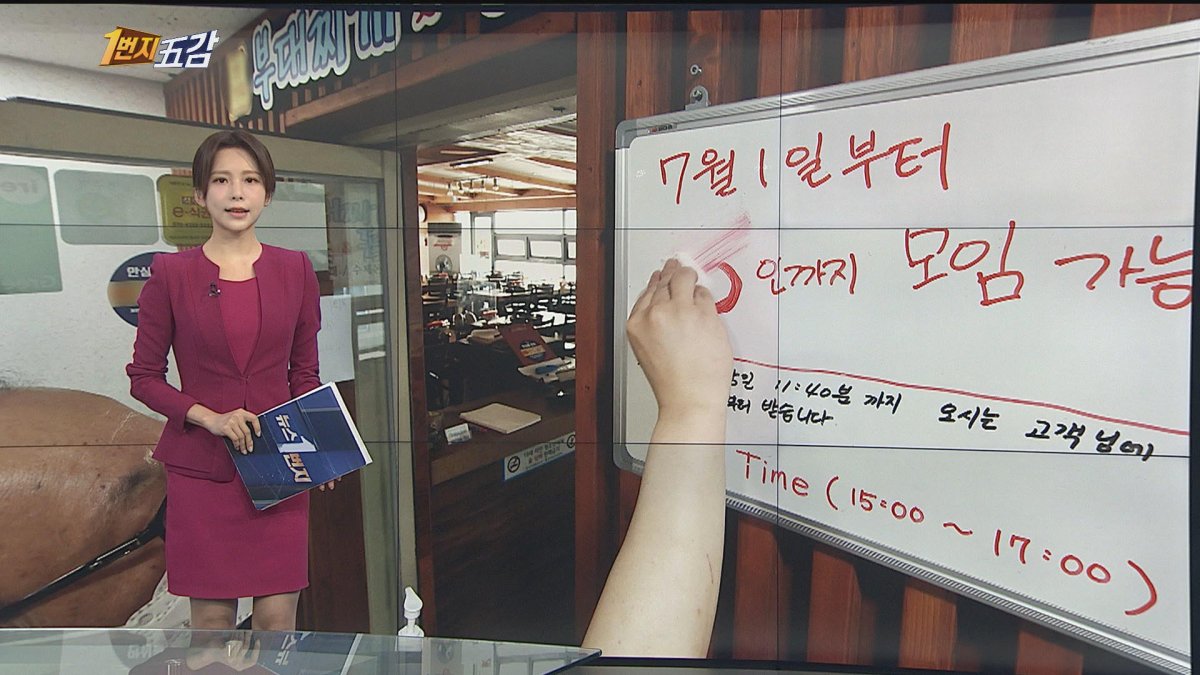 1번지 五감
부대찌개
e-식권
안심
7월 1일부터
인까지 모임 가능
5인 11:40분 까지 오시는 고객님에
부터 받습니다
Time (15:00 ~ 17:00)
뉴스
1번지